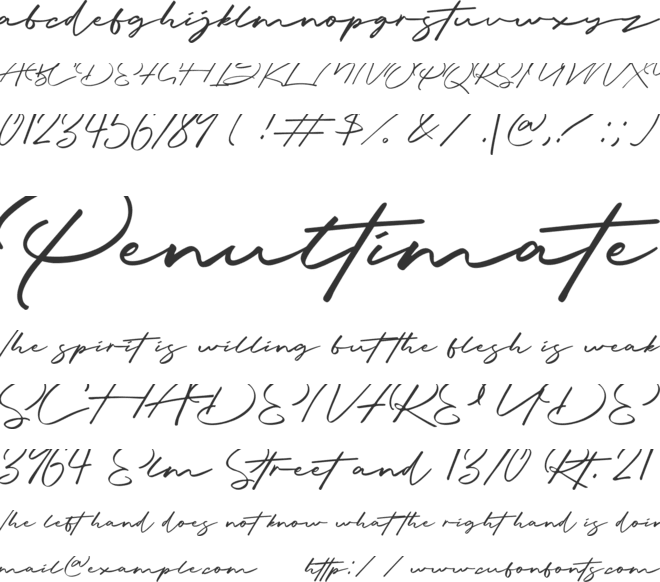 abcdefghijklmnopqrstuvwxyz
ABCDEFGHIJKLMNOPQRSTUVWX
0123456789 ( ! # $ / . & / . | @ , / : ; )
Penultimate
The spirit is willing but the flesh is weak
SCHADENFREUDE
3964 Elm Street and 1370 Rt. 21
The left hand does not know what the right hand is doin
mail@example.com http://www.cufonfonts.com